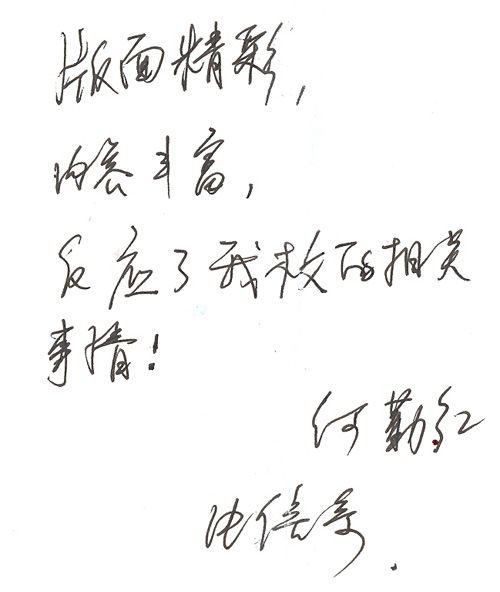 版面精彩，
内容丰富，
反应了我校的相关
事情！
何勤红